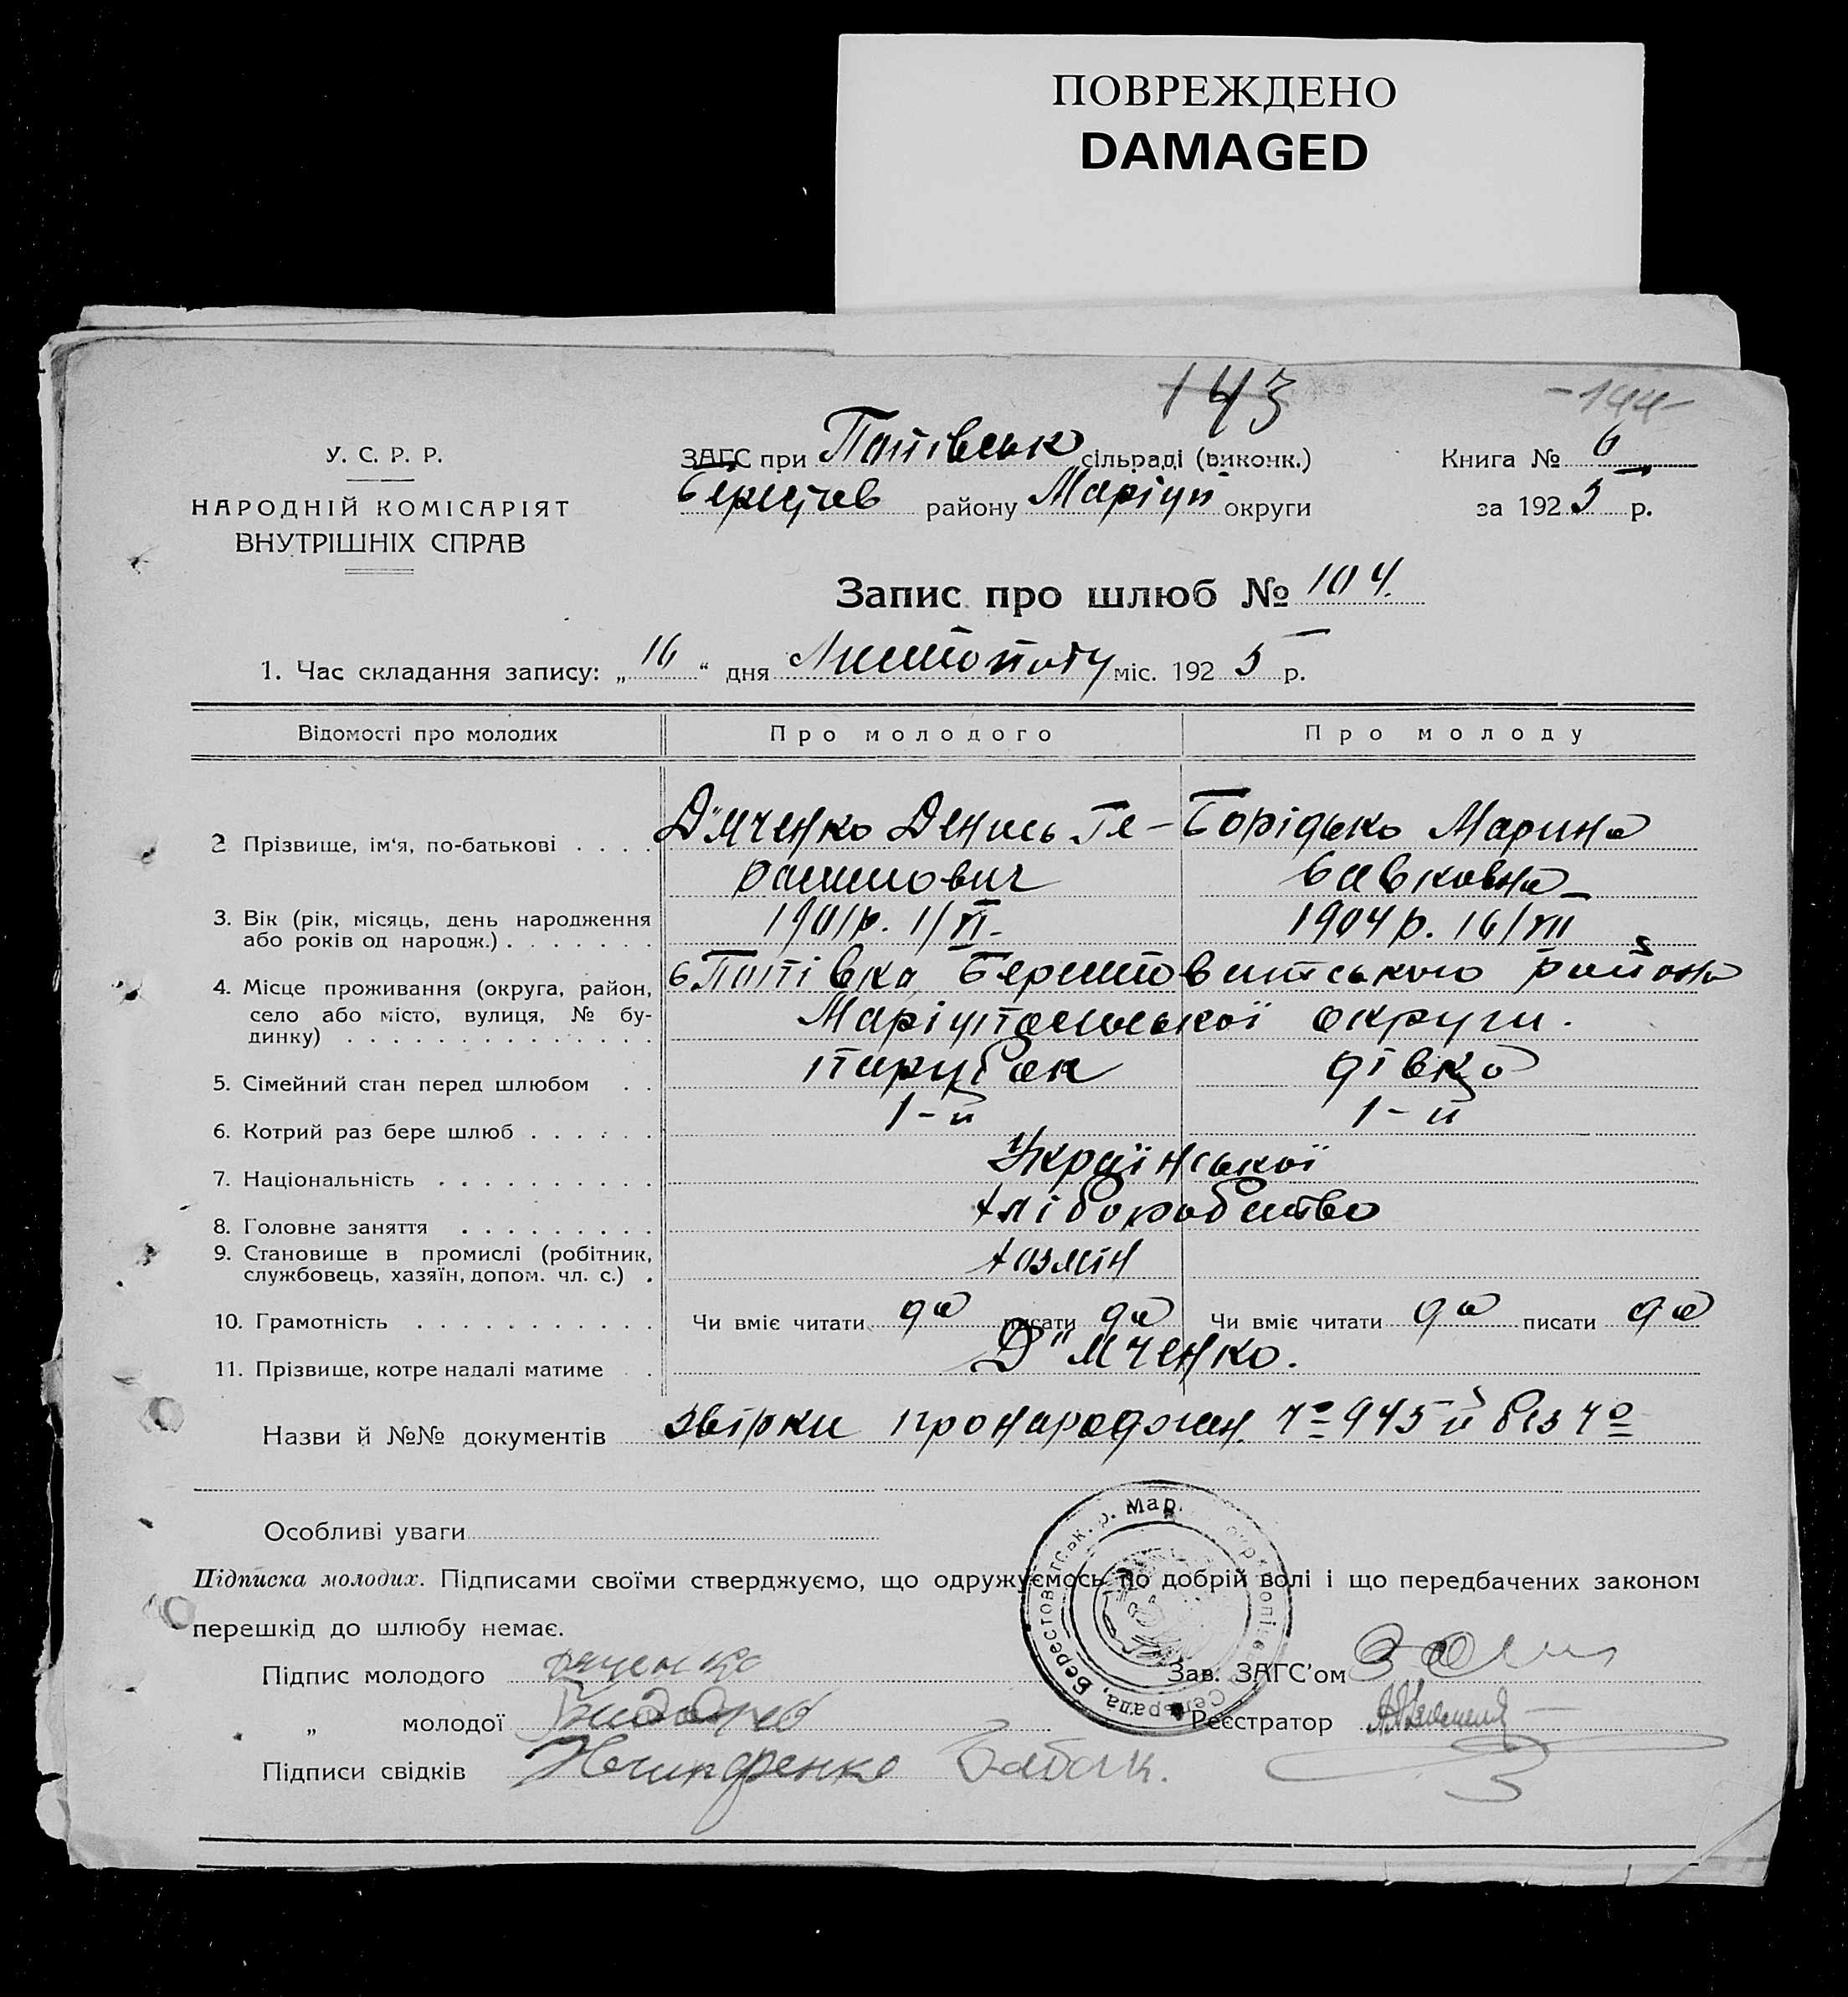 ПОВРЕЖДЕНО
DAMAGED
143
-144-
У. С. Р. Р.
НАРОДНІЙ КОМІСАРІЯТ
ВНУТРІШНІХ СПРАВ
ЗАГС при Попівськ сільраді (виконк.)
району Маріуп округи
Книга № 6
за 1925 р.
Запис про шлюб № 104.
1. Час складання запису: „16“ дня Листопоту міс. 1925 р.
Відомості про молодих Про молодого Про молоду
2 Прізвище, ім'я, по-батькові . . . . Д"яченко Денись Ге- Борідько Марина
расимович Савковна
3. Вік (рік, місяць, день народження
або років од народж.) . . . . . . . 1901р. 1/VI- 1904р. 16/VII
4. Місце проживання (округа, район, с. Попівка, Берестовитського району
село або місто, вулиця, № бу-
динку) . . . . . . . . . . . . . . Маріупольської округи.
5. Сімейний стан перед шлюбом . . парубок дівка
6. Котрий раз бере шлюб . . . . . . 1-й 1-й
7. Національність . . . . . . . . . . Української
8. Головне заняття . . . . . . . . . хліборобство
9. Становище в промислі (робітник,
службовець, хазяїн, допом. чл. с.) . хазяїн
10. Грамотність . . . . . . . . . . . Чи вміє читати да писати да Чи вміє читати да писати да
11. Прізвище, котре надалі матиме . . Д"яченко.
Назви й №№ документів звірки про народжен. Чо 945 й без Чо
Особливі уваги
Підписка молодих. Підписами своїми стверджуємо, що одружуємось по добрій волі і що передбачених законом
перешкід до шлюбу немає.
Підпис молодого Дяченко
„ молодої
Підписи свідків Нечипоренко Бабак.
Зав. ЗАГС'ом
Реєстратор
Сельрада, Берестоватськ. р. Мар.